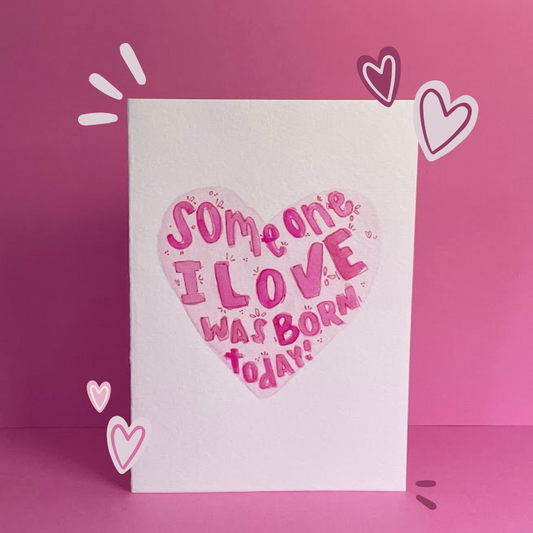 SOMeONe
I LOVE
WAS BORN
toDAY!